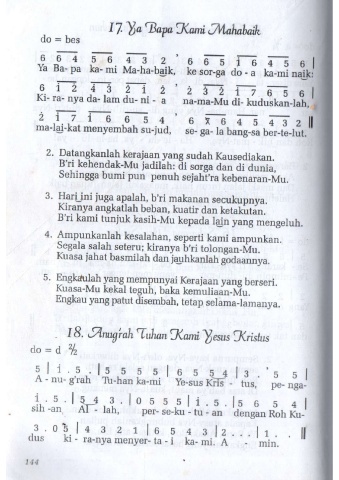 17. Ya Bapa Kami Mahabaik
do = bes
6 6 4 5 6 4 3 2 ' 6 6 5 1 6 4 5 6 |
Ya Ba- pa ka- mi Ma-ha-baik, ke sor-ga do - a ka-mi naik:
6 1 2 4 3 2 1 2 ' 2 3 2 1 7 6 5 6 |
Ki- ra- nya da- lam du- ni - a na-ma-Mu di- kuduskan-lah,
2 1 7 1 6 6 5 4 ' 6 6 4 5 4 3 2 ||
ma-lai-kat menyembah su-jud, se- ga- la bang-sa ber-te-lut.
2. Datangkanlah kerajaan yang sudah Kausediakan.
B'ri kehendak-Mu jadilah: di sorga dan di dunia,
Sehingga bumi pun penuh sejaht'ra kebenaran-Mu.
3. Hari ini juga apalah, b'ri makanan secukupnya.
Kiranya angkatlah beban, kuatir dan ketakutan.
B'ri kami tunjuk kasih-Mu kepada lain yang mengeluh.
4. Ampunkanlah kesalahan, seperti kami ampunkan.
Segala salah seteru; kiranya b'ri tolongan-Mu.
Kuasa jahat basmilah dan jauhkanlah godaannya.
5. Engkaulah yang mempunyai Kerajaan yang berseri.
Kuasa-Mu kekal teguh, baka kemuliaan-Mu.
Engkau yang patut disembah, tetap selama-lamanya.
18. Anug'rah Tuhan Kami Yesus Kristus
do = d 2/2
5 | 1 . 5 . | 5 5 5 5 | 6 5 5 4 | 3 . ' 5 5 |
A - nu- g'rah Tu-han ka-mi Ye-sus Kris - tus, pe- nga-
1 . 5 . | 5 4 3 . | 0 5 5 5 | 1 . 5 . | 5 6 5 4 |
sih -an Al - lah, per- se-ku - tu - an dengan Roh Ku-
3 . 0 5 | 4 3 2 1 | 6 5 4 3 | 2 . . . | 1 . . ||
dus ki - ra-nya menyer- ta - i ka- mi. A - min.
144